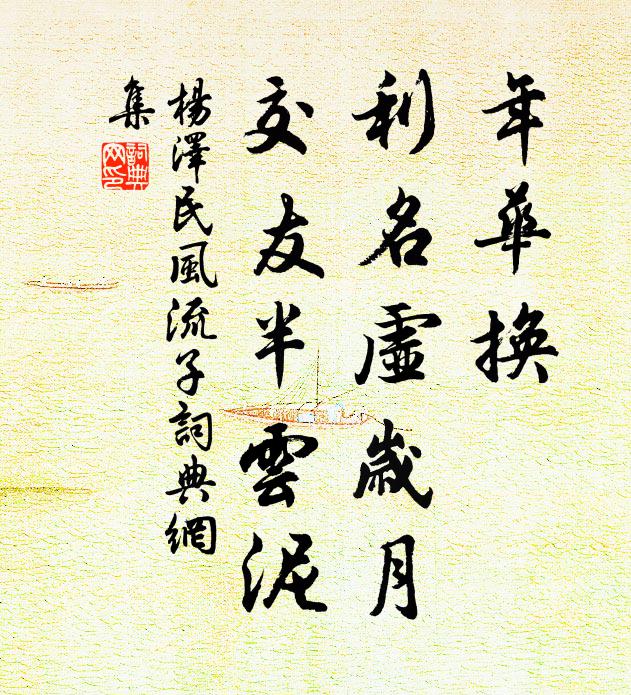 年華換
利名虛歲月
交友半雲泥
楊澤民風流子詞典網
集
詞典
网印